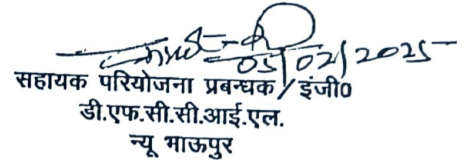 05/02/2025
सहायक परियोजना प्रबन्धक / इंजी०
डी.एफ.सी.सी.आई.एल.
न्यू भाऊपुर